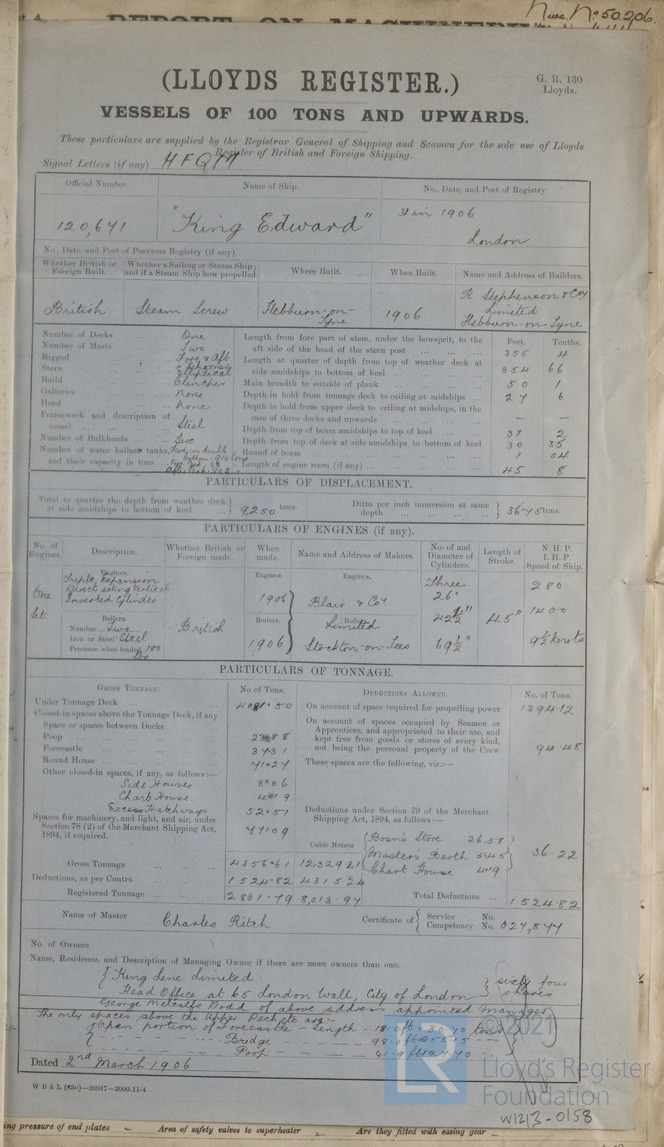 REPORT ON MACHINERY
No. 50,206.
(LLOYDS REGISTER.)
G. R. 130
Lloyds.
VESSELS OF 100 TONS AND UPWARDS.
These particulars are supplied by the Registrar General of Shipping and Seamen for the sole use of Lloyds
Register of British and Foreign Shipping.
Signal Letters (if any)
Official Number. Name of Ship. No., Date, and Port of Registry.
120,671 "King Edward" 31 in 1906
London
No., Date, and Port of Previous Registry (if any)
Whether British or Foreign Built. Whether a Sailing or Steam Ship; and if a Steam Ship how propelled. Where Built. When Built. Name and Address of Builders.
British Steam Screw Hebburn-on-Tyne 1906 R Stephenson & Coy Limited Hebburn-on-Tyne
Number of Decks ... One
Number of Masts ... Two
Rigged ... Fore & Aft
Stern ... Elliptical
Build ... Clincher
Galleries ... None
Head ... None
Framework and description of vessel ... Steel
Number of Bulkheads ... Six
Number of water ballast tanks, and their capacity in tons
Feet. Tenths.
Length from fore part of stem, under the bowsprit, to the aft side of the head of the stern post ... 355 4
Length at quarter of depth from top of weather deck at side amidships to bottom of keel ... 354 66
Main breadth to outside of plank ... 50 1
Depth in hold from tonnage deck to ceiling at midships ... 27 6
Depth in hold from upper deck to ceiling at midships, in the case of three decks and upwards ... — —
Depth from top of beam amidships to top of keel ... 37 2
Depth from top of deck at side amidships to bottom of keel 30 35
Round of beam ... 1 04
Length of engine room (if any) ... 45 8
PARTICULARS OF DISPLACEMENT.
Total to quarter the depth from weather deck at side amidships to bottom of keel } 9250 tons. Ditto per inch immersion at same depth } 36.45 tons.
PARTICULARS OF ENGINES (if any).
No. of Engines. Description. Whether British or Foreign made. When made. Name and Address of Makers. No. of and Diameter of Cylinders. Length of Stroke. N.H.P. I.H.P. Speed of Ship.
Engines. Engines. Engines.
One Set Triple expansion Direct acting Vertical Inverted Cylinder 1906 Three 26" 280
Boilers. Boilers. Boilers.
Number Two British Blair & Coy Limited 42½" 45" 1400
Iron or Steel Steel
Pressure when loaded 180 lbs 1906 Stockton-on-Tees 69½" 9½ knots
PARTICULARS OF TONNAGE.
GROSS TONNAGE. No of Tons. DEDUCTIONS ALLOWED. No. of Tons.
Under Tonnage Deck ... 4081.50
Closed-in spaces above the Tonnage Deck, if any
Space or spaces between Decks
Poop ... 23.88
Forecastle ... 37.31
Round House ... 71.27
Other closed-in spaces, if any, as follows:—
Side Houses 8.86
Chart House 4.19
Excess Hatchways 52.51
Spaces for machinery, and light, and air, under Section 78 (2) of the Merchant Shipping Act, 1894, if required. 77.09
Gross Tonnage 4356.61 12,329.21
Deductions, as per Contra 1524.82 4315.24
Registered Tonnage 2831.79 8,013.97
On account of space required for propelling power 1394.12
On account of spaces occupied by Seamen or Apprentices, and appropriated to their use, and kept free from goods or stores of every kind, not being the personal property of the Crew 94.48
These spaces are the following, viz.:—
Deductions under Section 79 of the Merchant Shipping Act, 1894, as follows:—
Cubic Metres
Bosn's Store 26.58
Master's Berth 5.45
Chart House 4.19
36.22
Total Deductions ... 1524.82
Name of Master Charles Ritch Certificate of { Service No. Competency No. 027,577
No. of Owners
Name, Residence, and Description of Managing Owner if there are more owners than one.
{ King Line Limited } sixty four
Head Office at 65 London Wall, City of London shares
George Metcalfe Dodd of above address appointed Manager
The only spaces above the Upper Deck etc are:-
Open portion of Forecastle - Length -
Bridge
Poop
Dated 2nd March 1906
W B & L (83o)—20917—2000-11-4
© 2021
LR
Lloyd's Register
Foundation
W1213-0158
ing pressure of end plates Area of safety valves to superheater Are they fitted with easing gear